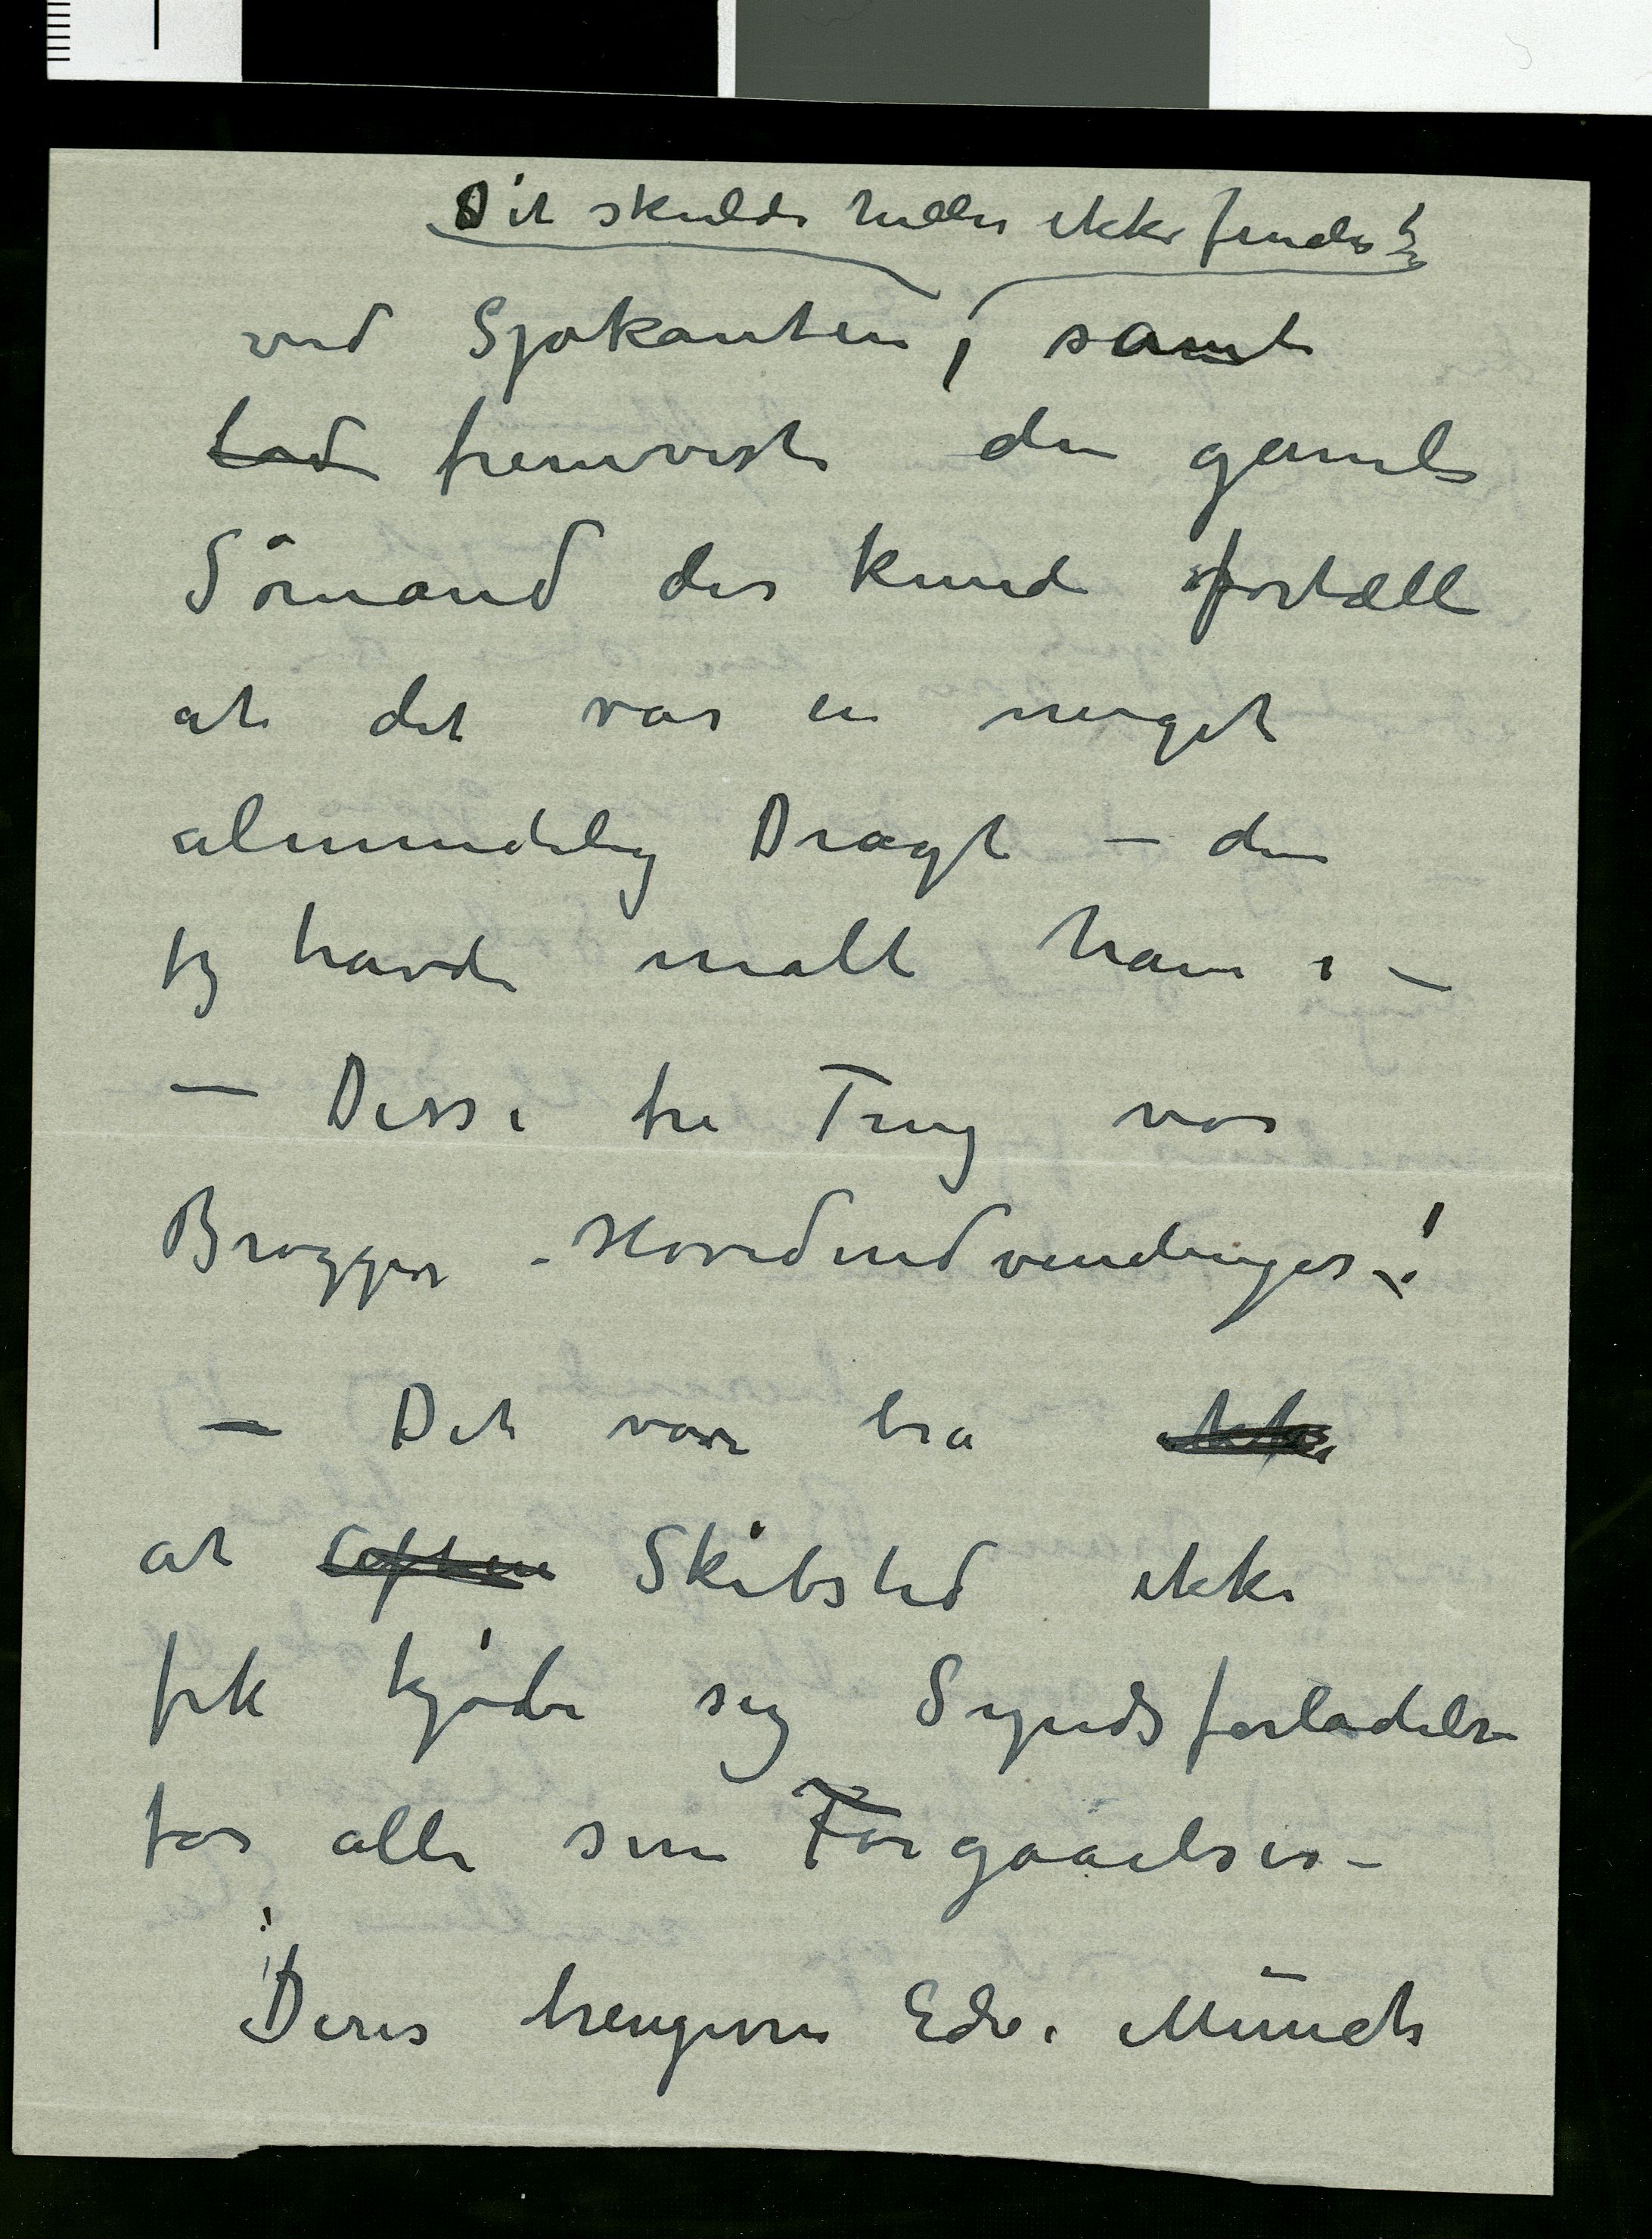 Det skulde heller ikke findes!
ved Sjøkanten, samt
lod fremviste den gamle
Sömand der kunde fortælle
at det var en meget
almindelig Dragt – den
jeg havde malt ham i –
– Disse tre Ting var
Brøgger Hovedindvendinger!
– Det var bra ikke
at Aften Skibsted ikke
fik kjøbe sig Syndsforladelse
for alle sine Forgaaelser –
Deres hengivne Edv. Munch